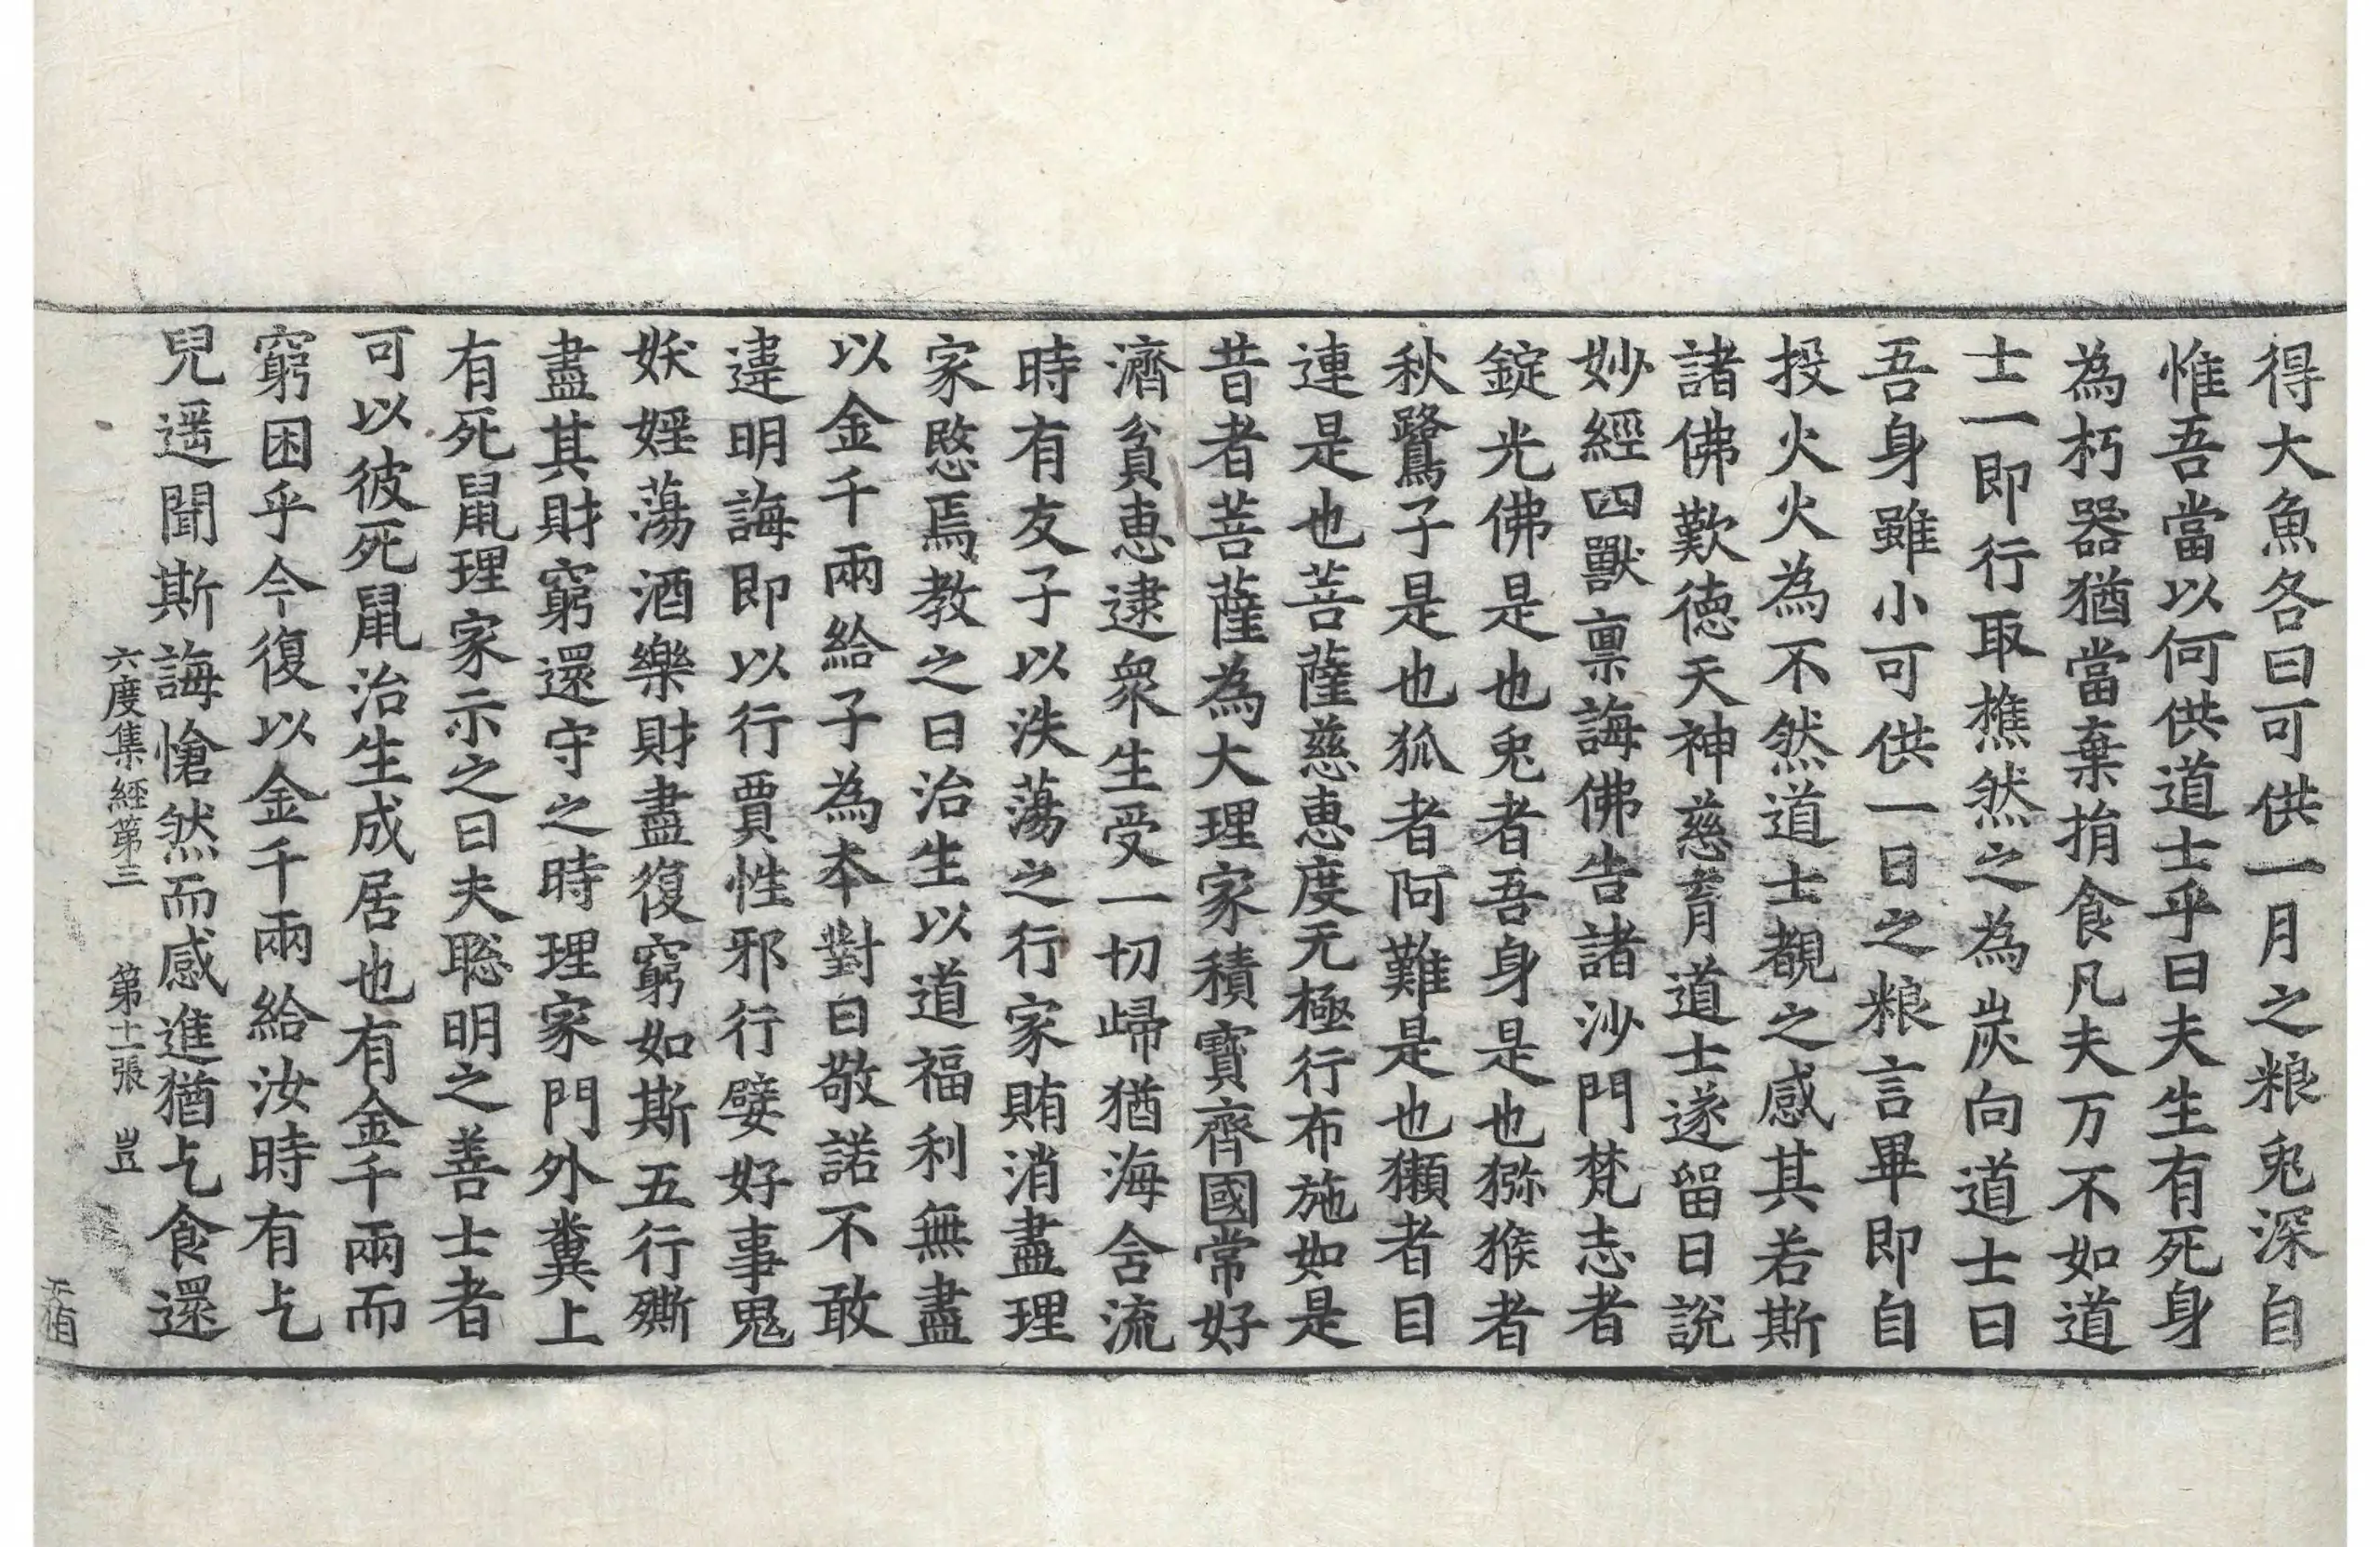 得大魚各曰可供一月之粮兎深自
惟吾當以何供道士乎曰夫生有死身
為朽器猶當棄捐食凡夫万不如道
士一即行取樵然之為炭向道士曰
吾身雖小可供一日之粮言畢即自
投火火為不然道士覩之感其若斯
諸佛歎德天神慈育道士遂留日說
妙經四獸禀誨佛告諸沙門梵志者
錠光佛是也兎者吾身是也猕猴者
秋鷺子是也狐者阿難是也獺者目
連是也菩薩慈惠度无極行布施如是
昔者菩薩為大理家積寶齊國常好
濟貧惠逮衆生受一切歸猶海含流
時有友子以泆蕩之行家賄消盡理
家愍焉教之曰治生以道福利無盡
以金千兩給子為本對曰敬諾不敢
違明誨即以行賈性邪行嬖好事鬼
妖婬蕩酒樂財盡復窮如斯五行㒋
盡其財窮還守之時理家門外糞上
有死鼠理家示之曰夫聡明之善士者
可以彼死鼠治生成居也有金千兩而
窮困乎今復以金千兩給汝時有乞
兒遥聞斯誨愴然而感進猶乞食還
六度集經第三 第十一張 豈